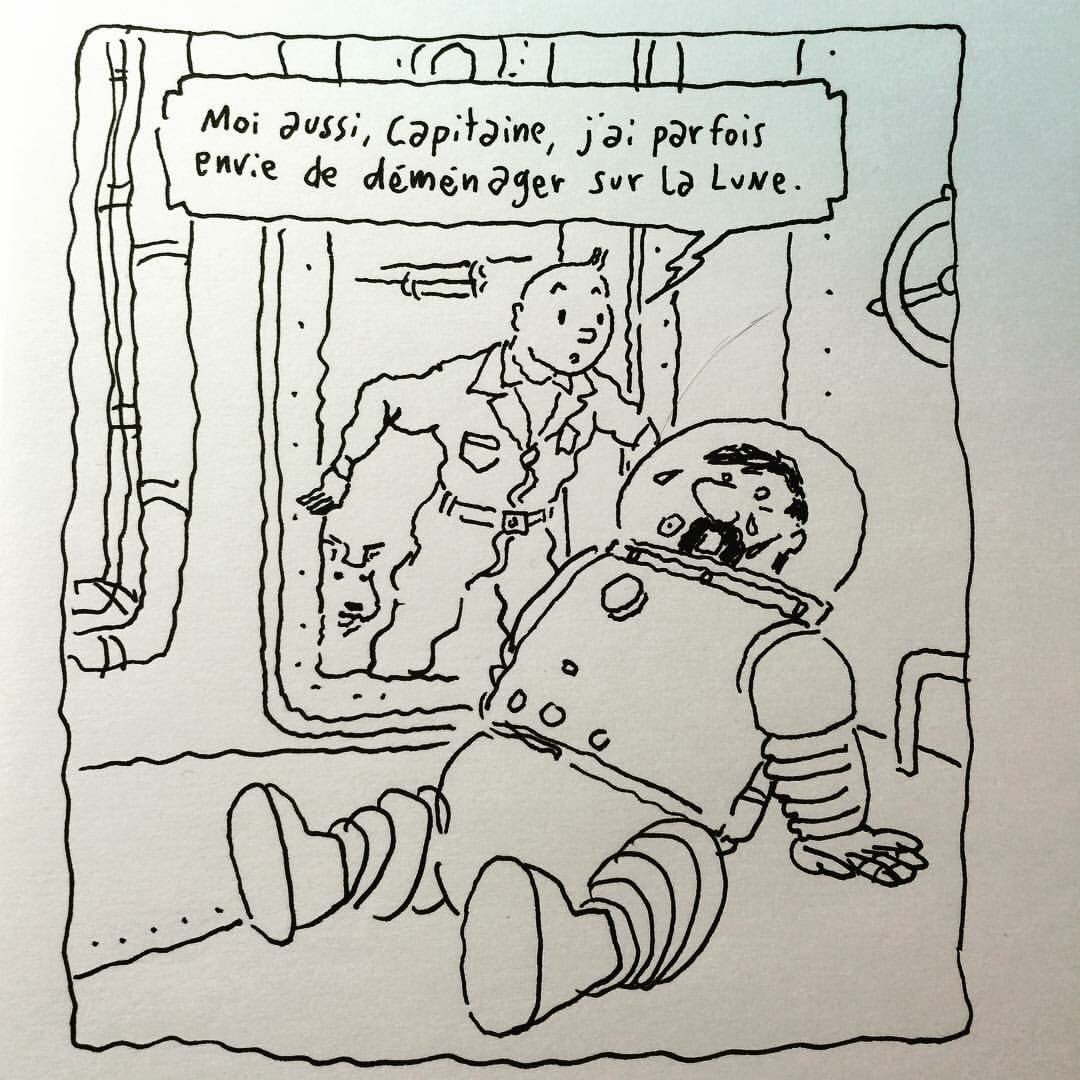 Moi aussi, Capitaine, j'ai parfois
envie de déménager sur la Lune.